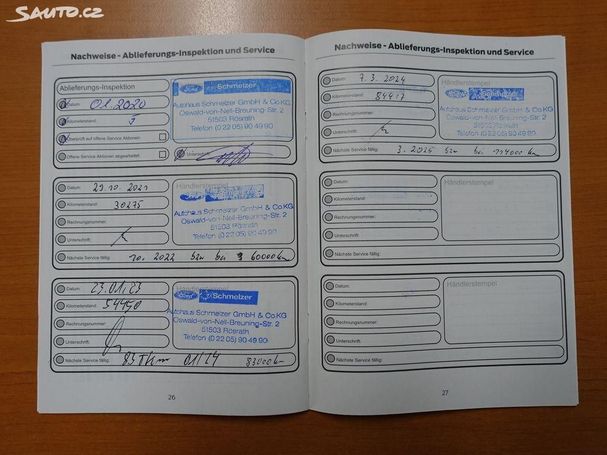 Sauto.cz
Nachweise - Ablieferungs-Inspektion und Service
Ablieferungs-Inspektion
Datum: 01.2020
Kilometerstand:
Überprüft auf offene Service Aktionen:
Offene Service Aktionen abgearbeitet:
Ford Schmelzer
Autohaus Schmelzer GmbH & Co.KG
Oswald-von-Nell-Breuning-Str. 2
51503 Rösrath
Telefon (0 22 05) 90 49 90
Unterschrift:
Datum: 29.10.2021
Kilometerstand: 30275
Rechnungsnummer:
Unterschrift:
Händlerstempel
Ford
Autohaus Schmelzer GmbH & Co.KG
Oswald-von-Nell-Breuning-Str. 2
51503 Rösrath
Telefon (0 22 05) 90 49 90
Nächste Service fällig: 10.2022 bzw bei 60000 km
Datum: 23.01.23
Kilometerstand: 54450
Rechnungsnummer:
Unterschrift:
Ford Schmelzer
Autohaus Schmelzer GmbH & Co.KG
Oswald-von-Nell-Breuning-Str. 2
51503 Rösrath
Telefon (0 22 05) 90 49 90
Nächste Service fällig: 83Tkm 01/24 83000 km
26
Nachweise - Ablieferungs-Inspektion und Service
Datum: 7.3.2024
Kilometerstand: 84417
Rechnungsnummer:
Unterschrift:
Händlerstempel
Ford
Autohaus Schmelzer GmbH & Co.KG
Oswald-von-Nell-Breuning-Str. 2
51503 Rösrath
Telefon (0 22 05) 90 49 90
Nächste Service fällig: 3.2025 bzw bei 114000 km
Datum:
Kilometerstand:
Rechnungsnummer:
Unterschrift:
Händlerstempel
Nächste Service fällig:
Datum:
Kilometerstand:
Rechnungsnummer:
Unterschrift:
Händlerstempel
Nächste Service fällig:
27